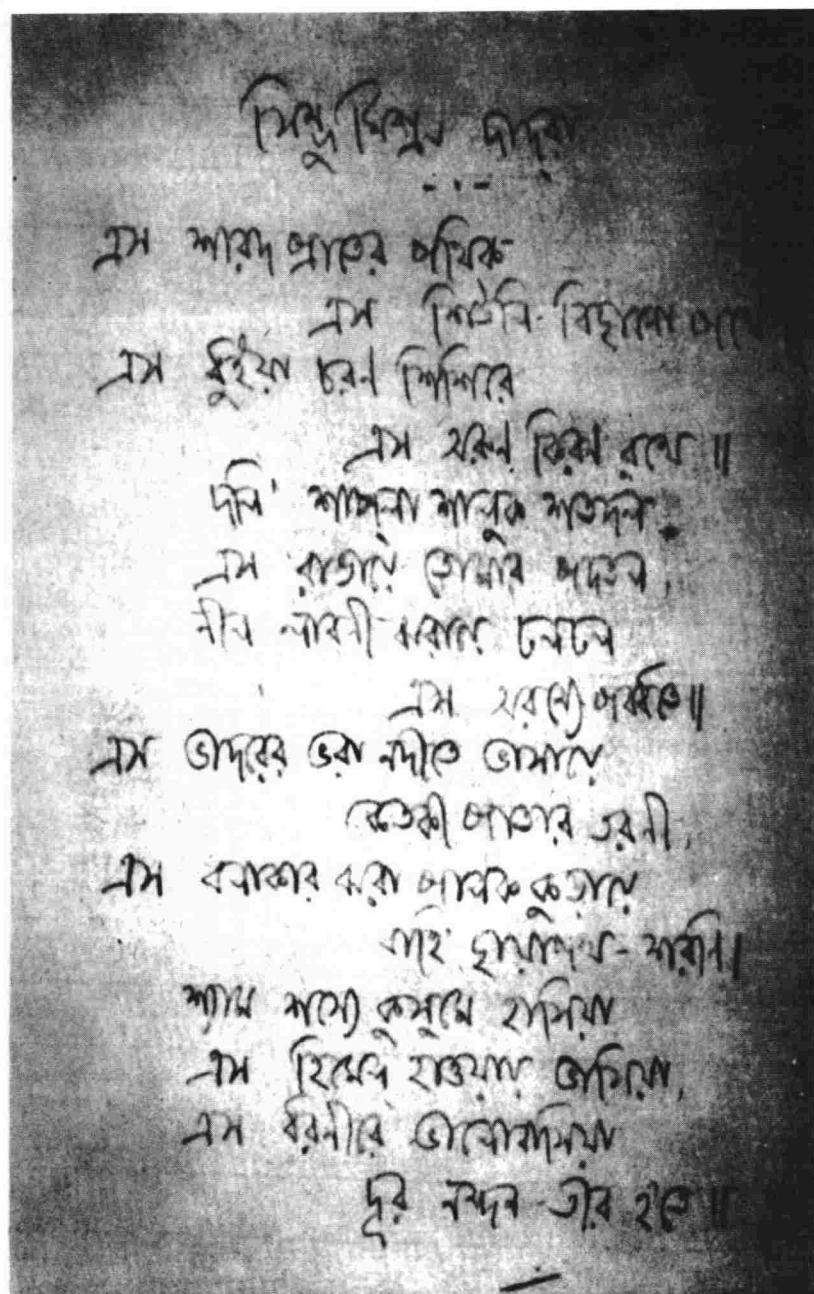 সিন্ধু মিশ্রণ দাদ্‌রা
এস শারদ প্রাতের পথিক
এস শিউলি-বিছানো পথে
এস ধুইয়া চরণ শিশিরে
এস অরুণ কিরণ রথে॥
দলি' শাপলা শালুক শতদল,
এস রাঙায়ে তোমার পদতল,
নীল লাবণী ঝরায়ে ঢলঢল
এস অরণ্যে পর্বতে॥
এস ভাদরের ভরা নদীতে ভাসায়ে
কেতকী পাতার তরণী,
এস বলাকার ঝরা পালক কুড়ায়ে
বাহি ছায়াপথ-সরণি।
শ্যাম শস্যে কুসুমে হাসিয়া
এস হিমেল হাওয়ায় ভাসিয়া,
এস ধরণীরে ভালোবাসিয়া
দূর নন্দন-তীর হতে॥